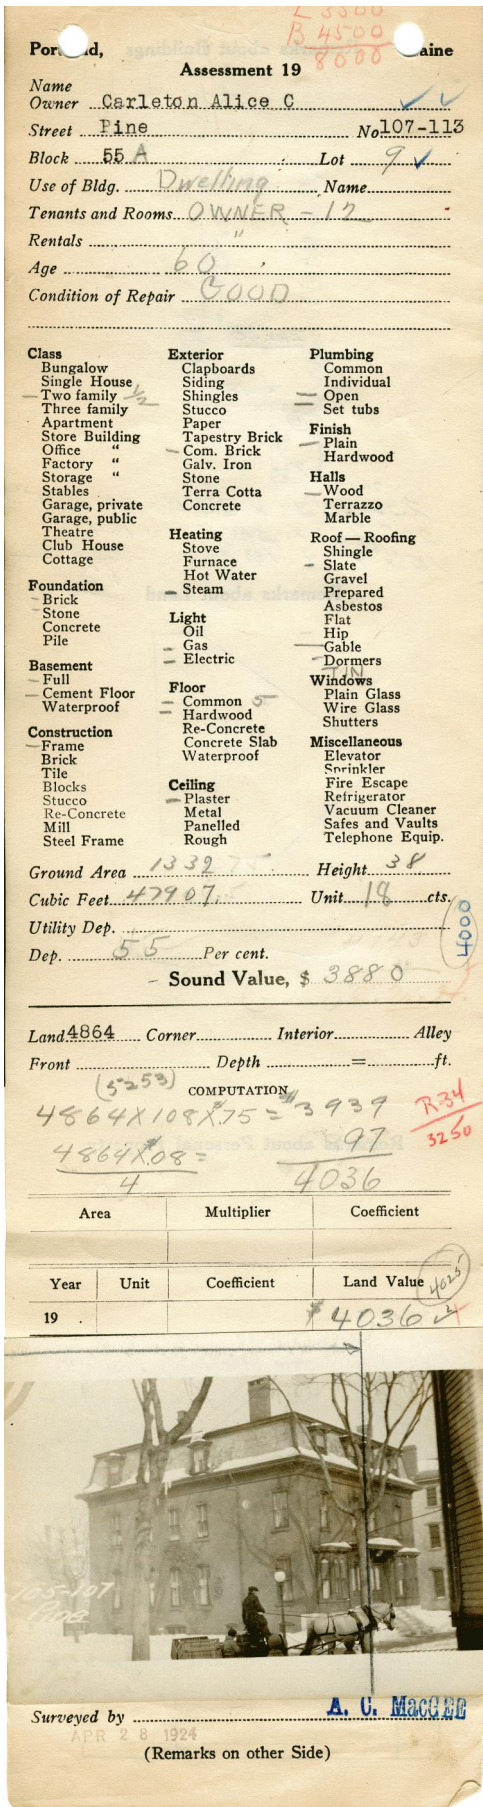 L 3500
B 4500
8000
Portland, Maine
Assessment 19
Name
Owner Carleton Alice C
Street Pine No 107-113
Block 55 A Lot 9
Use of Bldg. Dwelling Name
Tenants and Rooms OWNER - 12
Rentals "
Age 60
Condition of Repair GOOD
Class
Bungalow
Single House
Two family 1/2
Three family
Apartment
Store Building
Office "
Factory "
Storage "
Stables
Garage, private
Garage, public
Theatre
Club House
Cottage
Foundation
Brick
Stone
Concrete
Pile
Basement
Full
Cement Floor
Waterproof
Construction
Frame
Brick
Tile
Blocks
Stucco
Re-Concrete
Mill
Steel Frame
Exterior
Clapboards
Siding
Shingles
Stucco
Paper
Tapestry Brick
Com. Brick
Galv. Iron
Stone
Terra Cotta
Concrete
Heating
Stove
Furnace
Hot Water
Steam
Light
Oil
Gas
Electric
Floor
Common 5
Hardwood
Re-Concrete
Concrete Slab
Waterproof
Ceiling
Plaster
Metal
Panelled
Rough
Plumbing
Common
Individual
Open
Set tubs
Finish
Plain
Hardwood
Halls
Wood
Terrazzo
Marble
Roof — Roofing
Shingle
Slate
Gravel
Prepared
Asbestos
Flat
Hip
Gable
Dormers
TIN
Windows
Plain Glass
Wire Glass
Shutters
Miscellaneous
Elevator
Sprinkler
Fire Escape
Refrigerator
Vacuum Cleaner
Safes and Vaults
Telephone Equip.
Ground Area 1332.75 Height 38
Cubic Feet 47907.5 Unit 18 cts.
4000
Utility Dep.
Dep. 55 Per cent.
Sound Value, $ 3880
Land 4864 Corner Interior Alley
Front Depth = ft.
(5253)
COMPUTATION
4864 X 108 X .75 = $3939
R-34
3250
4864 X .08 = 97
4
4036
Area Multiplier Coefficient
Year Unit Coefficient Land Value
4025
19 $4036
105-107
Pine
Surveyed by A. C. MacGEE
APR 28 1924
(Remarks on other Side)